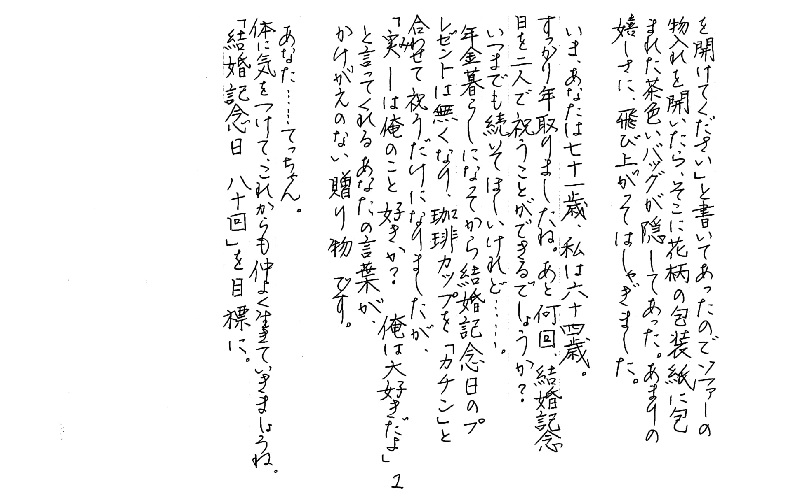 を開けてください」と書いてあったのでソファーの
物入れを開いたら、そこに花柄の包装紙に包
まれた茶色いバッグが隠してあった。あまりの
嬉しさに、飛び上がってはしゃぎました。
いま、あなたは七十一歳、私は六十四歳。
すっかり年取りましたね。あと何回、結婚記念
日を二人で祝うことができるでしょうか?
いつまでも続いてほしいけれど……。
年金暮らしになってから結婚記念日のプ
レゼントは無くなり、珈琲カップを「カチン」と
合わせて祝うだけになりましたが、
「実ーは俺のこと好きか? 俺は大好きだよ」
み
と言ってくれるあなたの言葉が、
かけがえのない贈り物です。
あなた……てっちゃん。
体に気をつけて、これからも仲よく生きていきましょうね。
「結婚記念日 八十回」を目標に。
2